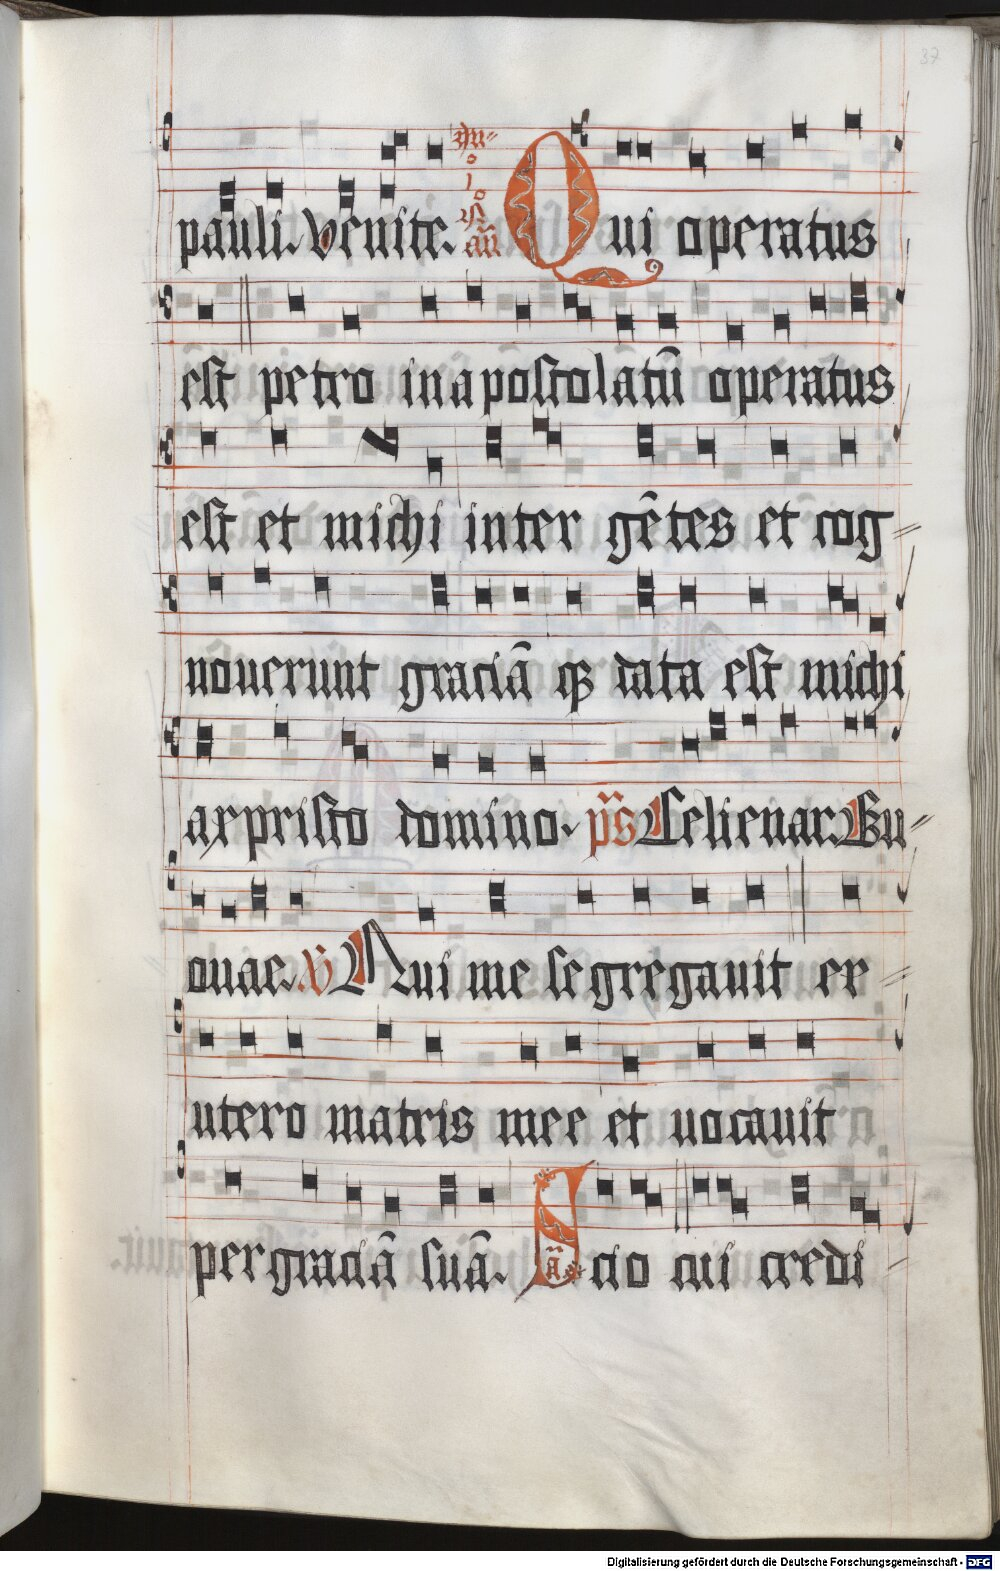 37
pauli. Venite. Qui operatus
est petro in apostolatū operatus
est et michi inter gētes et cog
nouerunt graciā q̄ data est michi
a xpristo domino. p̄s Celi enar. Eu
ouae. V̄ Qui me segregauit ex
utero matris mee et uocauit
per graciā suā. ā Scio cui credi
Digitalisierung gefördert durch die Deutsche Forschungsgemeinschaft - DFG